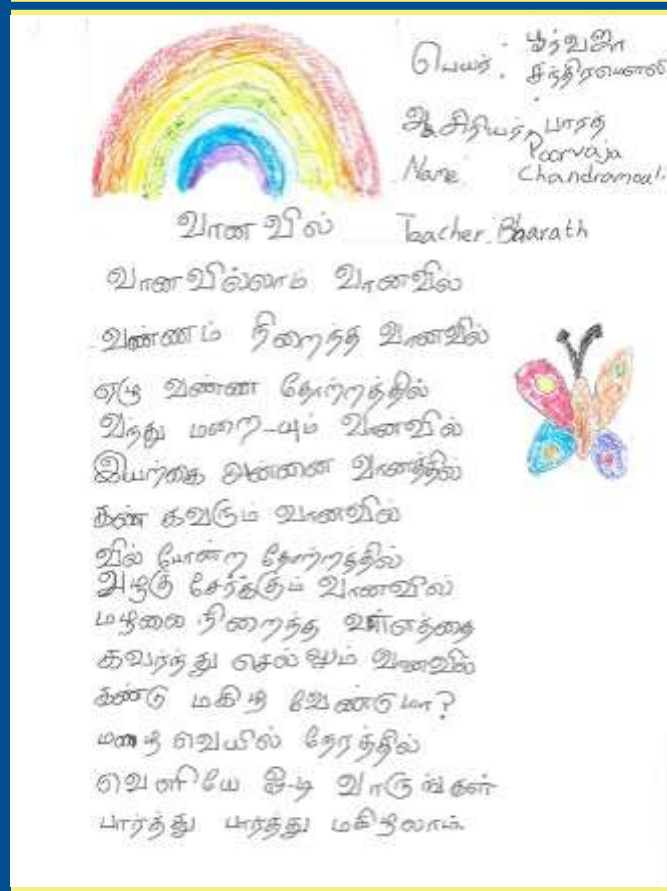 பெயர் : பூர்வஜா
சந்திரமௌலி
ஆசிரியர் பாரத்
Name Poorvaja
Chandramouli
Teacher. Bharath
வானவில்
வானவில்லாம் வானவில்
வண்ணம் நிறைந்த வானவில்
ஏழு வண்ண தோற்றத்தில்
வந்து மறை-யும் வானவில்
இயற்கை அன்னை வானத்தில்
கண் கவரும் வானவில்
வில் போன்ற தோற்றத்தில்
அழகு சேர்க்கும் வானவில்
மழலை நிறைந்த உள்ளத்தை
கவர்ந்து செல்லும் வானவில்
கண்டு மகிழ வேண்டுமா?
மழை வெயில் நேரத்தில்
வெளியே ஓடி வாருங்கள்
பார்த்து பார்த்து மகிழலாம்